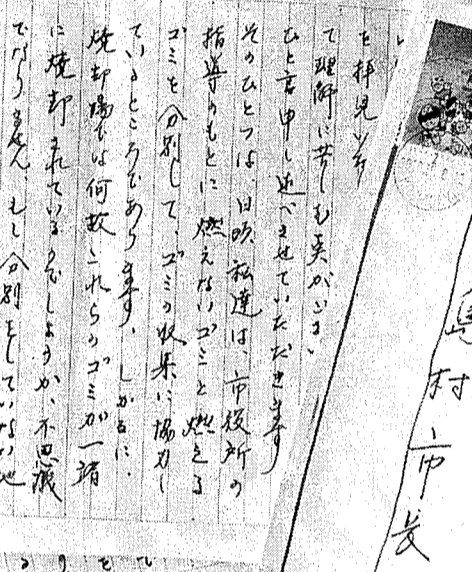 を拝見いた
て理解に苦しむ点がござい
ひと言申し述べさせていただきます
そのひとつは、日頃、私達は、市役所の
指導のもとに燃えないゴミと燃える
ゴミを分別して、ゴミの収集に協力し
ているところであります。しかるに、
焼却場では何故これらのゴミが一諸
に焼却されているのでしょうか、不思議
でなりません。もし分別をしていない
島村市長